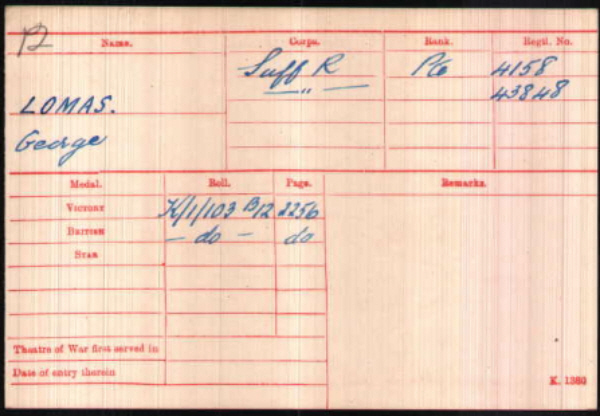 Name. Corps. Rank. Regtl. No.
Suff R Pte 4158
— " — 43848
LOMAS.
George
Medal. Roll. Page. Remarks.
VICTORY K/1/103 B12 2256
BRITISH - do - do
STAR
Theatre of War first served in
Date of entry therein
K. 1380